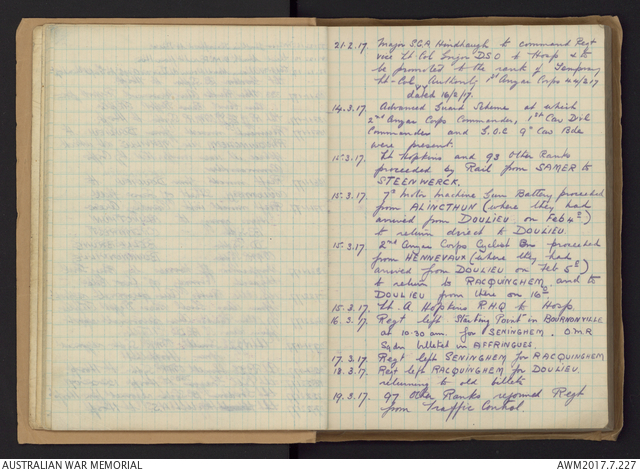 21.2.17. Major S.C.A. Hindhaugh to command Regt
vice Lt-Col DSO to Hosp & to
be promoted to the rank of Temporary
Lt-Col. Authority 1st Anzac Corps 44/217
dated 16/2/17.
14.3.17. Advanced Guard Scheme at which
2nd Anzac Corps Commander, 1st Cav Div
Commander and G.O.C 9th Cav Bde
were present.
15.3.17. Lt Hopkins and 93 Other Ranks
proceeded by Rail from SAMER to
STEENWERCK.
15.3.17. 7th Motor Machine Gun Battery proceeded
from ALINCTHUN (where they had
arrived from DOULIEU on Feb 4th)
to return direct to DOULIEU.
15.3.17. 2nd Anzac Corps Cyclist Bn proceeded
from HENNEVAUX (where they had
arrived from DOULIEU on Feb 5th)
to return to RACQUINGHEM and to
DOULIEU from there on 16th
15.3.17. Lt. A Hopkins R.H.Q to Hosp.
16.3.17. Regt left "Starting Point" in BOURNONVILLE
at 10.30 am. for SENINGHEM. O.M.R
Sqdn billeted in AFFRINGUES.
17.3.17. Regt left SENINGHEM for RACQUINGHEM
18.3.17. Regt left RACQUINGHEM for DOULIEU
returning to old billets
19.3.17. 97 Other Ranks rejoined Regt
from Traffic Control.
AUSTRALIAN WAR MEMORIAL
AWM2017.7.227